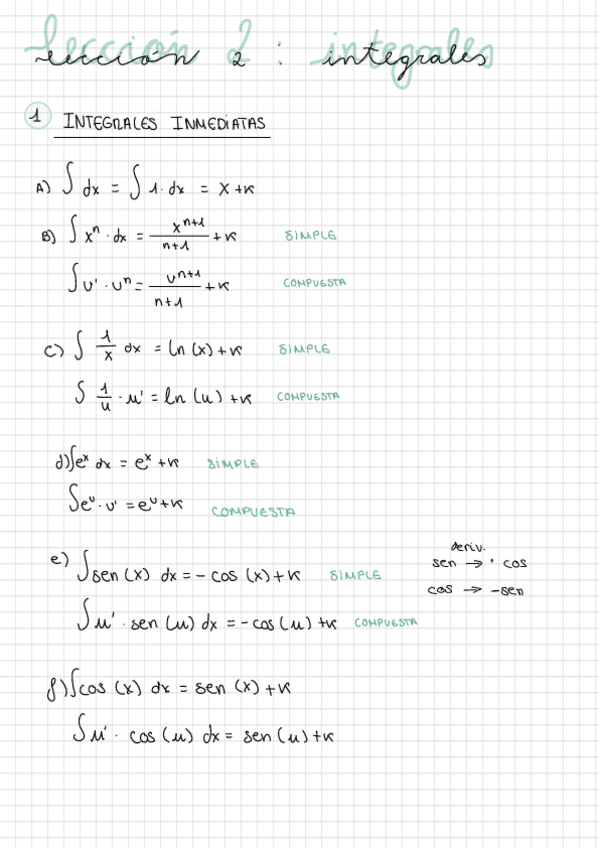 lección 2 : integrales
1 INTEGRALES INMEDIATAS
A) ∫ dx = ∫ 1 · dx = x + k
B) ∫ xⁿ · dx = xⁿ⁺¹/n+1 + k SIMPLE
∫ u' · uⁿ = uⁿ⁺¹/n+1 + k COMPUESTA
c) ∫ 1/x dx = ln (x) + k SIMPLE
∫ 1/u · u' = ln (u) + k COMPUESTA
d) ∫ eˣ dx = eˣ + k SIMPLE
∫ eᵘ · u' = eᵘ + k COMPUESTA
deriv.
sen → ' cos
cos → -sen
e) ∫ sen (x) dx = - cos (x) + k SIMPLE
∫ u' · sen (u) dx = - cos (u) + k COMPUESTA
f) ∫ cos (x) dx = sen (x) + k
∫ u' · cos (u) dx = sen (u) + k